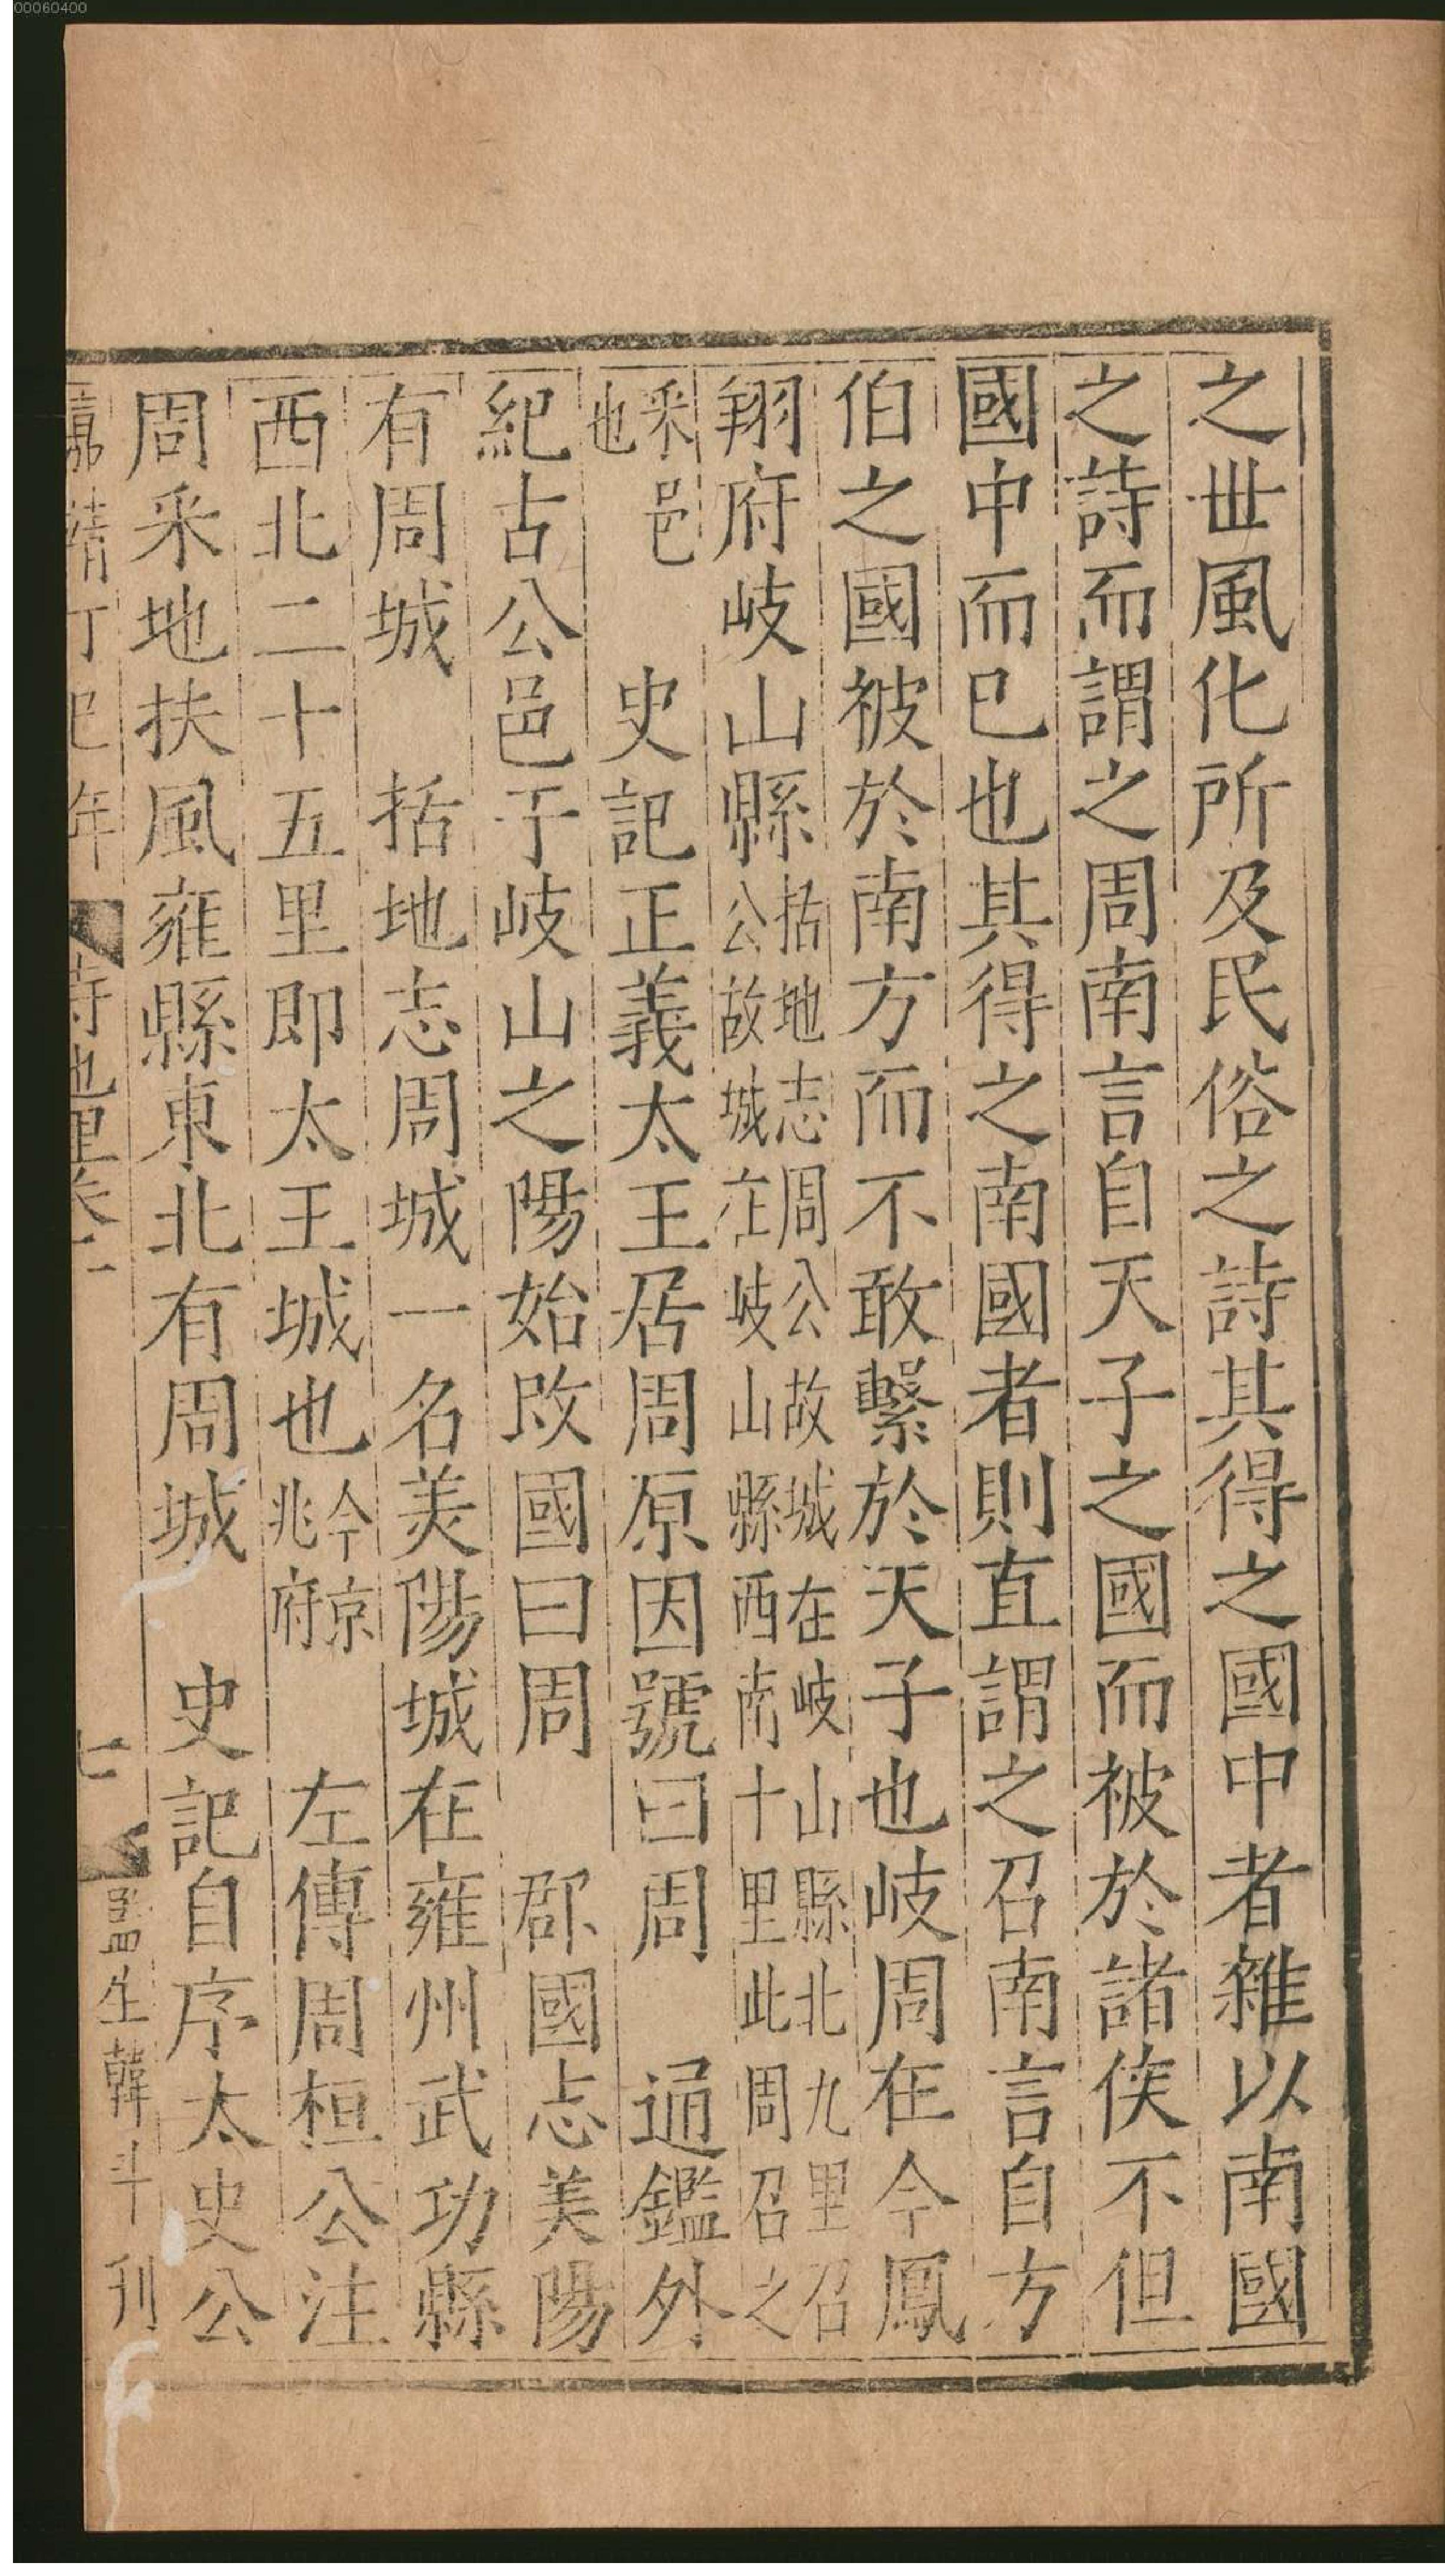 00060400
之世風化所及民俗之詩其得之國中者雜以南國
之詩而謂之周南言自天子之國而被於諸侯不但
國中而已也其得之南國者則直謂之召南言自方
伯之國被於南方而不敢繫於天子也岐周在今鳳
翔府岐山縣括地志周公故城在岐山縣北九里召公故城在岐山縣西南十里此周召之
采邑也　史記正義太王居周原因號曰周　通鑑外
紀古公邑于岐山之陽始改國曰周　郡國志美陽
有周城　括地志周城一名美陽城在雍州武功縣
西北二十五里即太王城也今京兆府　左傳周桓公注
周采地扶風雍縣東北有周城　史記自序太史公
嘉靖丁巳年 詩地里卷一 七 監生韓斗刊